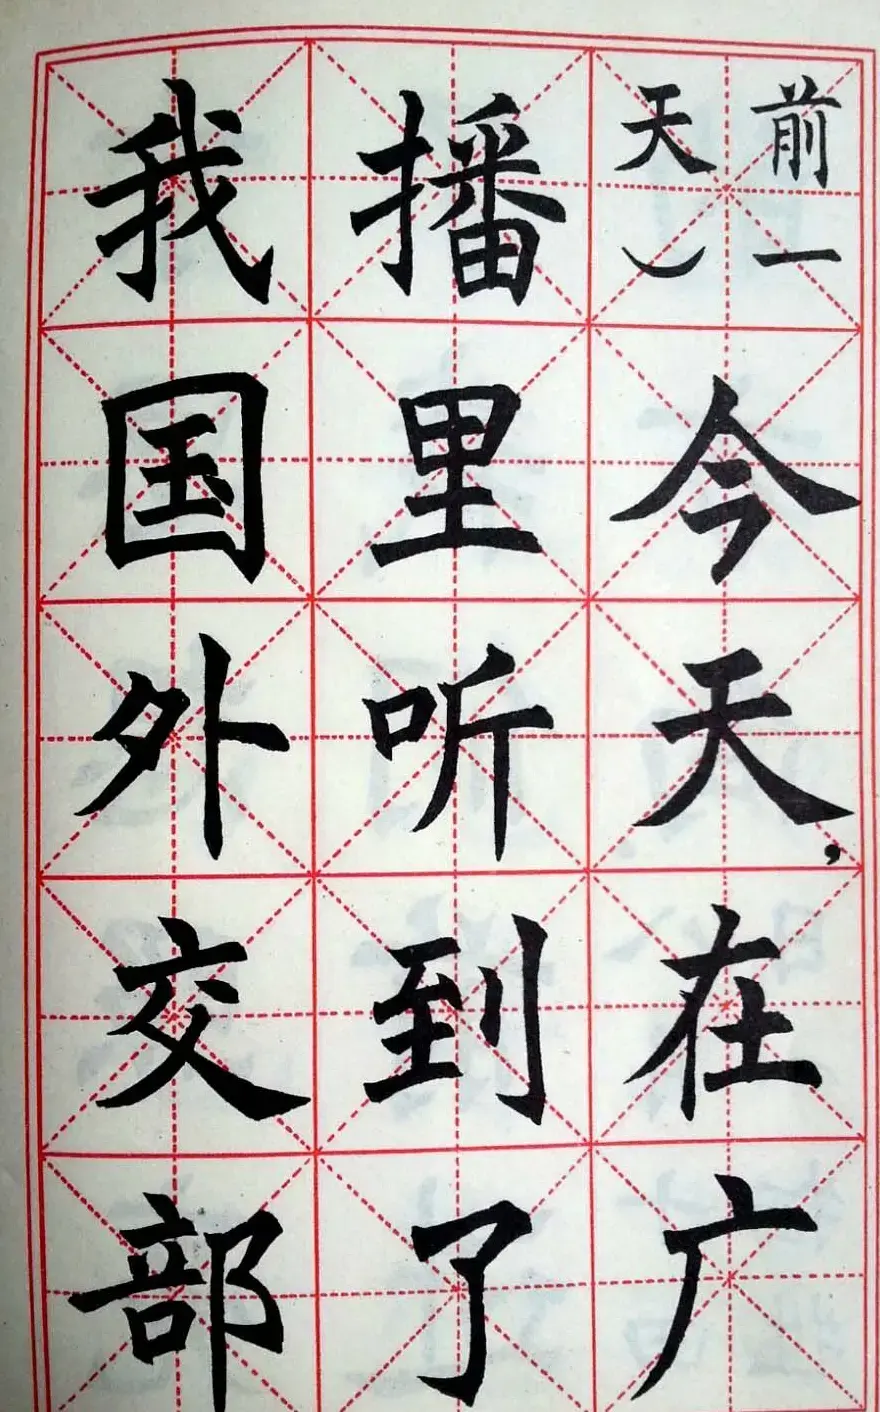 前一
天）
今天，在广
播里听到了
我国外交部